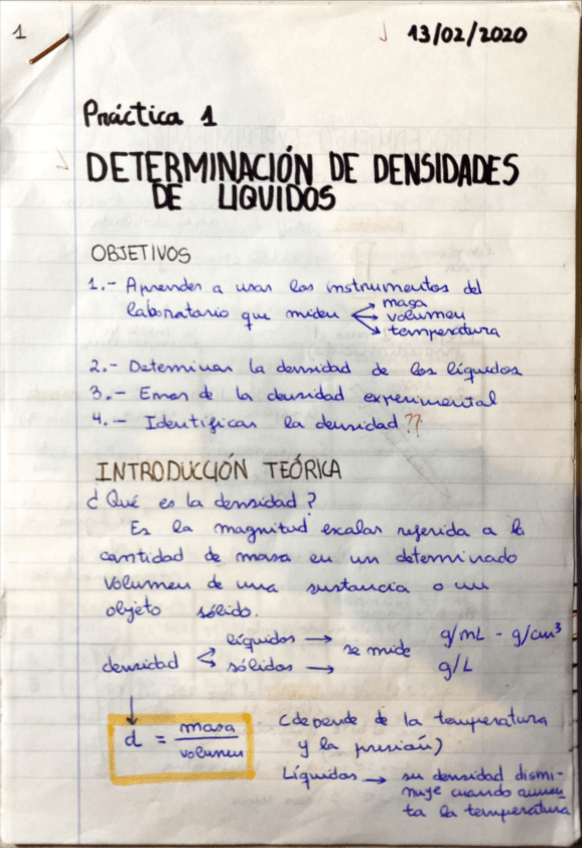 1
13/02/2020
Práctica 1
DETERMINACIÓN DE DENSIDADES
DE LIQUIDOS
OBJETIVOS
1.- Aprender a usar los instrumentos del
laboratorio que miden
masa
volumen
temperatura
2.- Determinar la densidad de los líquidos
3.- Error de la densidad experimental
4.- Identificar la densidad ??
INTRODUCCIÓN TEÓRICA
¿Qué es la densidad?
Es la magnitud escalar referida a la
cantidad de masa en un determinado
volumen de una sustancia o un
objeto sólido.
densidad
líquidos → se mide g/mL - g/cm³
sólidos → g/L
d = masa / volumen
(depende de la temperatura
y la presión)
Líquidos → su densidad dismi-
nuye cuando aumen
ta la temperatura